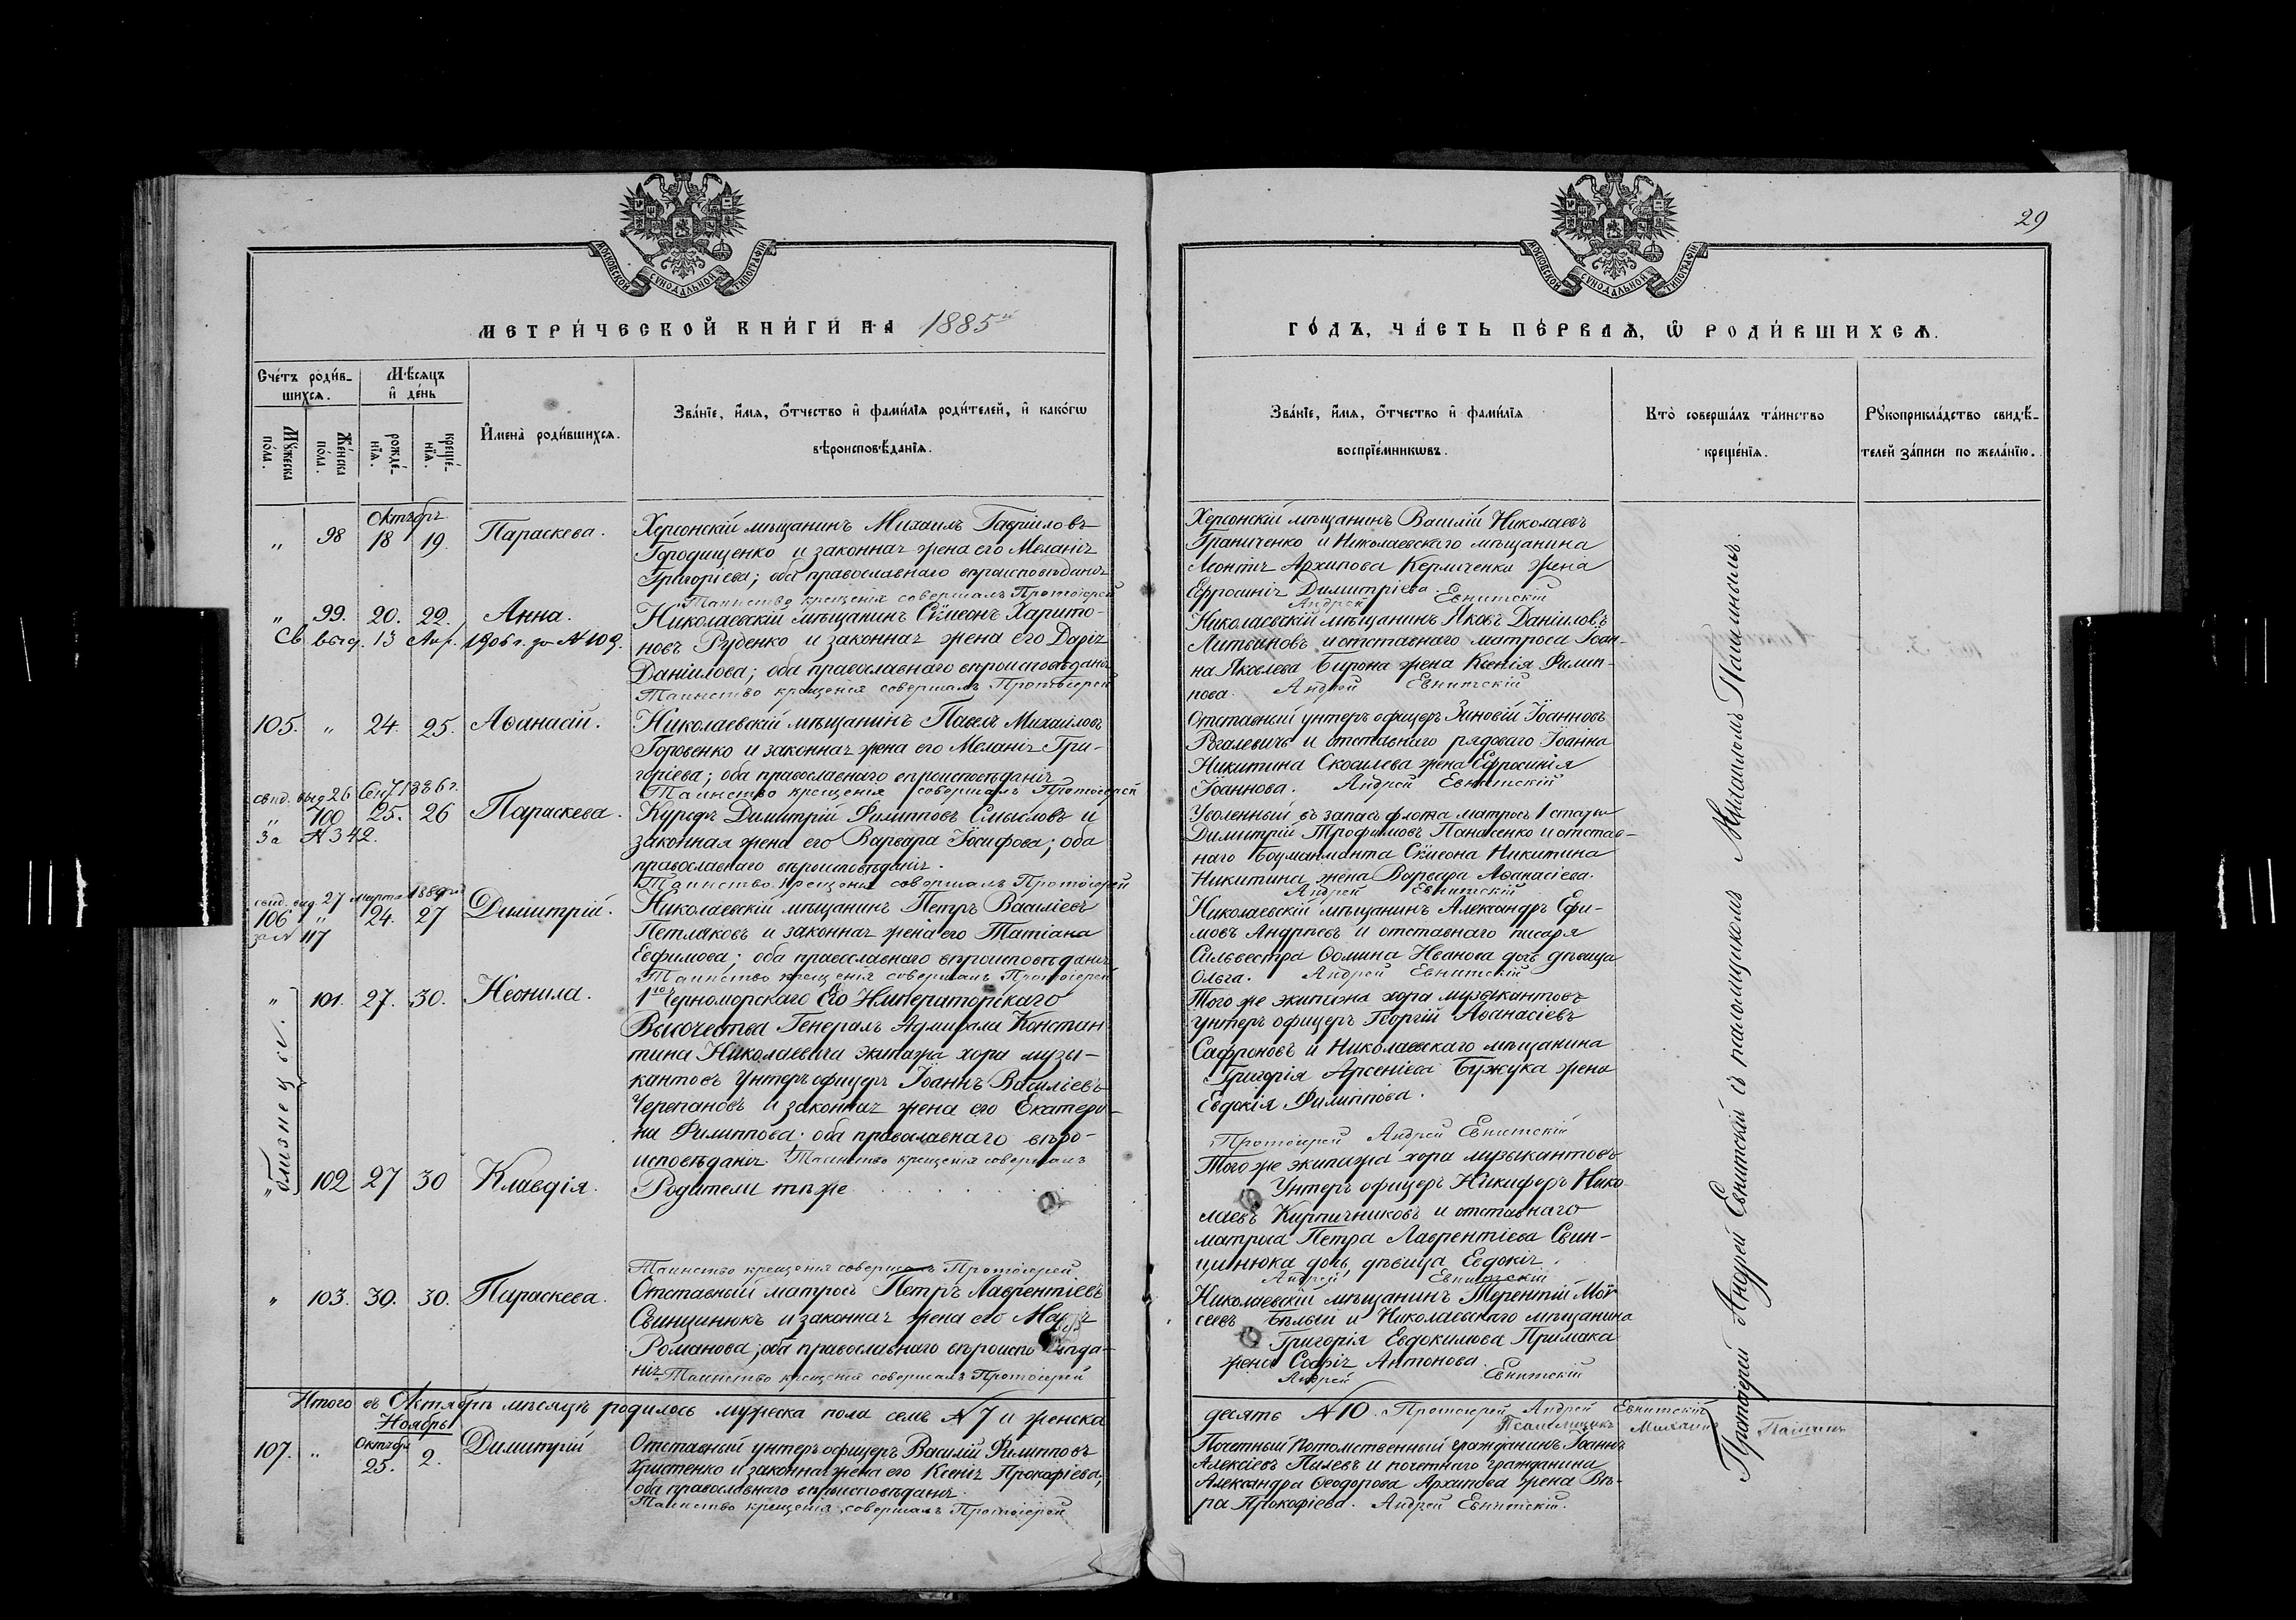 29
МОСКОВСКОЙ СѴНОДАЛЬНОЙ ТИПОГРАФІИ
МОСКОВСКОЙ СѴНОДАЛЬНОЙ ТИПОГРАФІИ
МЕТРИ́ЧЕСКОЙ КНИ́ГИ НА 1885й
ГО́ДЪ, ЧА́СТЬ ПЕ́РВАѦ, Ѡ РОДИ́ВШИХСѦ.
Сче́тъ роди́в-
шихсѧ.
Мѣ́сяцъ
и҆ де́нь
Мꙋ́жеска по́ла.
Же́нска по́ла.
рожде́-нїѧ.
креще́-нїѧ.
И҆мена̀ роди́вшихсѧ.
Зва́нїе, и҆́мѧ, ѻ҆́тчество и҆ фами́лїѧ роди́телей, и҆ како́гѡ
вѣроисповѣ́данїѧ.
Зва́нїе, и҆́мѧ, ѻ҆́тчество и҆ фами́лїѧ
воспрїе́мникѡвъ.
Кто̀ соверша́лъ та́инство
креще́нїѧ.
Рꙋкоприкла́дство свидѣ́-
телей за́писи по жела́нїю.
Октябрь
„ 98 18 19. Параскева.
Херсонскій мѣщанинъ Михаилъ Гавріиловъ
Городищенко и законная жена его Меланія
Григоріева; оба православнаго вѣроисповѣданія
Таинство крещенія совершалъ Протоіерей
Херсонскій мѣщанинъ Василій Николаевъ
Граниченко и Николаевскаго мѣщанина
Леонтія Архипова Кермиченка жена
Ефросинія Димитріева.
Андрей Евнитскій
„ 99. 20. 22. Анна.
Св. выд. 13 Апр. 1906 г. за № 109.
Николаевскій мѣщанинъ Сѵмеонъ Харито-
новъ Руденко и законная жена его Дарія
Даніилова; оба православнаго вѣроисповѣданія
Таинство крещенія совершалъ Протоіерей
Николаевскій мѣщанинъ Яковъ Даніиловъ
Литвиновъ и отставнаго матроса Іоан-
на Яковлева Бирона жена Ксенія Филип-
пова. Андрей Евнитскій
105. „ 24. 25. Аѳанасій.
Николаевскій мѣщанинъ Павелъ Михаиловъ
Горовенко и законная жена его Меланія Гри-
горіева; оба православнаго вѣроисповѣданія
Таинство крещенія совершалъ Протоіерей
Отставный унтеръ офицеръ Зиновій Іоанновъ
Рогалевичъ и отставнаго рядоваго Іоанна
Никитина Скобилева жена Ефросинія
Іоаннова. Андрей Евнитскій
свид. выд. 26 Сент 1886 г.
„ 100 25. 26 Параскева.
За № 342.
Курсдъ Димитрій Филипповъ Смысловъ и
законная жена его Варвара Іосифова; оба
православнаго вѣроисповѣданія.
Таинство крещенія совершалъ Протоіерей
Уволенный въ запасъ флота матросъ 1 статьи
Димитрій Трофимовъ Панасенко и отстав-
наго Боцманмата Сѵмеона Никитина
Никитина жена Варвара Аѳанасіева.
Андрей Евнитскій
свид. выд. 27 марта 1889 г.
106 „ 24. 27 Димитрій.
за № 117
Николаевскій мѣщанинъ Петръ Василіевъ
Петляковъ и законная жена его Татіана
Евфимова; оба православнаго вѣроисповѣданія
Таинство крещенія совершалъ Протоіерей
Николаевскій мѣщанинъ Александръ Ефи-
мовъ Андреевъ и отставнаго писаря
Сильвестра Ѳомина Иванова дочь дѣвица
Ольга. Андрей Евнитскій
близнецы.
„ 101. 27. 30. Неонила.
1го Черноморскаго Его Императорскаго
Высочества Генералъ Адмирала Констан-
тина Николаевича экипажа хора музы-
кантовъ Унтеръ офицеръ Іоаннъ Василіевъ
Черепановъ и законная жена его Екатери-
на Филиппова; оба православнаго вѣро-
исповѣданія. Таинство крещенія совершалъ
Того же экипажа хора музыкантовъ
унтеръ офицеръ Георгій Аѳанасіевъ
Сафроновъ и Николаевскаго мѣщанина
Григорія Арсеніева Бужука жена
Евдокія Филиппова.
Протоіерей Андрей Евнитскій
„ 102 27 30 Клавдія.
Родители тѣже
Таинство крещенія совершалъ Протоіерей
Того же экипажа хора музыкантовъ
Унтеръ офицеръ Никифоръ Нико-
лаевъ Кирпичниковъ и отставнаго
матроса Петра Лаврентіева Свин-
цинюка дочь, дѣвица Евдокія.
Андрей Евнитскій
„ 103. 30. 30. Параскева.
Отставный матросъ Петръ Лаврентіевъ
Свинцинюкъ и законная жена его
Романова; оба православнаго вѣроисповѣда-
нія Таинство крещенія совершалъ Протоіерей
Николаевскій мѣщанинъ Терентій Мої-
сеевъ Бѣлый и Николаевскаго мѣщанина
Григорія Евдокимова Примака
жена Софія Антонова.
Андрей Евнитскій
Итого въ Октябрѣ мѣсяцѣ родилось мужеска пола семь № 7 и женска
десять № 10. Протоіерей Андрей Евнитскій
Псаломщикъ Михаилъ Пашинъ
Ноябрь
107. „ Октября 25. 2. Димитрій
Отставный унтеръ офицеръ Василій Филипповъ
Христенко и законная жена его Ксенія Прокофіева;
оба православнаго вѣроисповѣданія.
Таинство крещенія совершалъ Протоіерей
Почетный потомственный гражданинъ Іоаннъ
Алексіевъ Пылевъ и почетнаго гражданина
Александра Ѳеодорова Архипова жена Вѣ-
ра Прокофіева. Андрей Евнитскій.
Протоіерей Андрей Евнитскій съ псаломщикомъ Михаиломъ Пашинымъ.